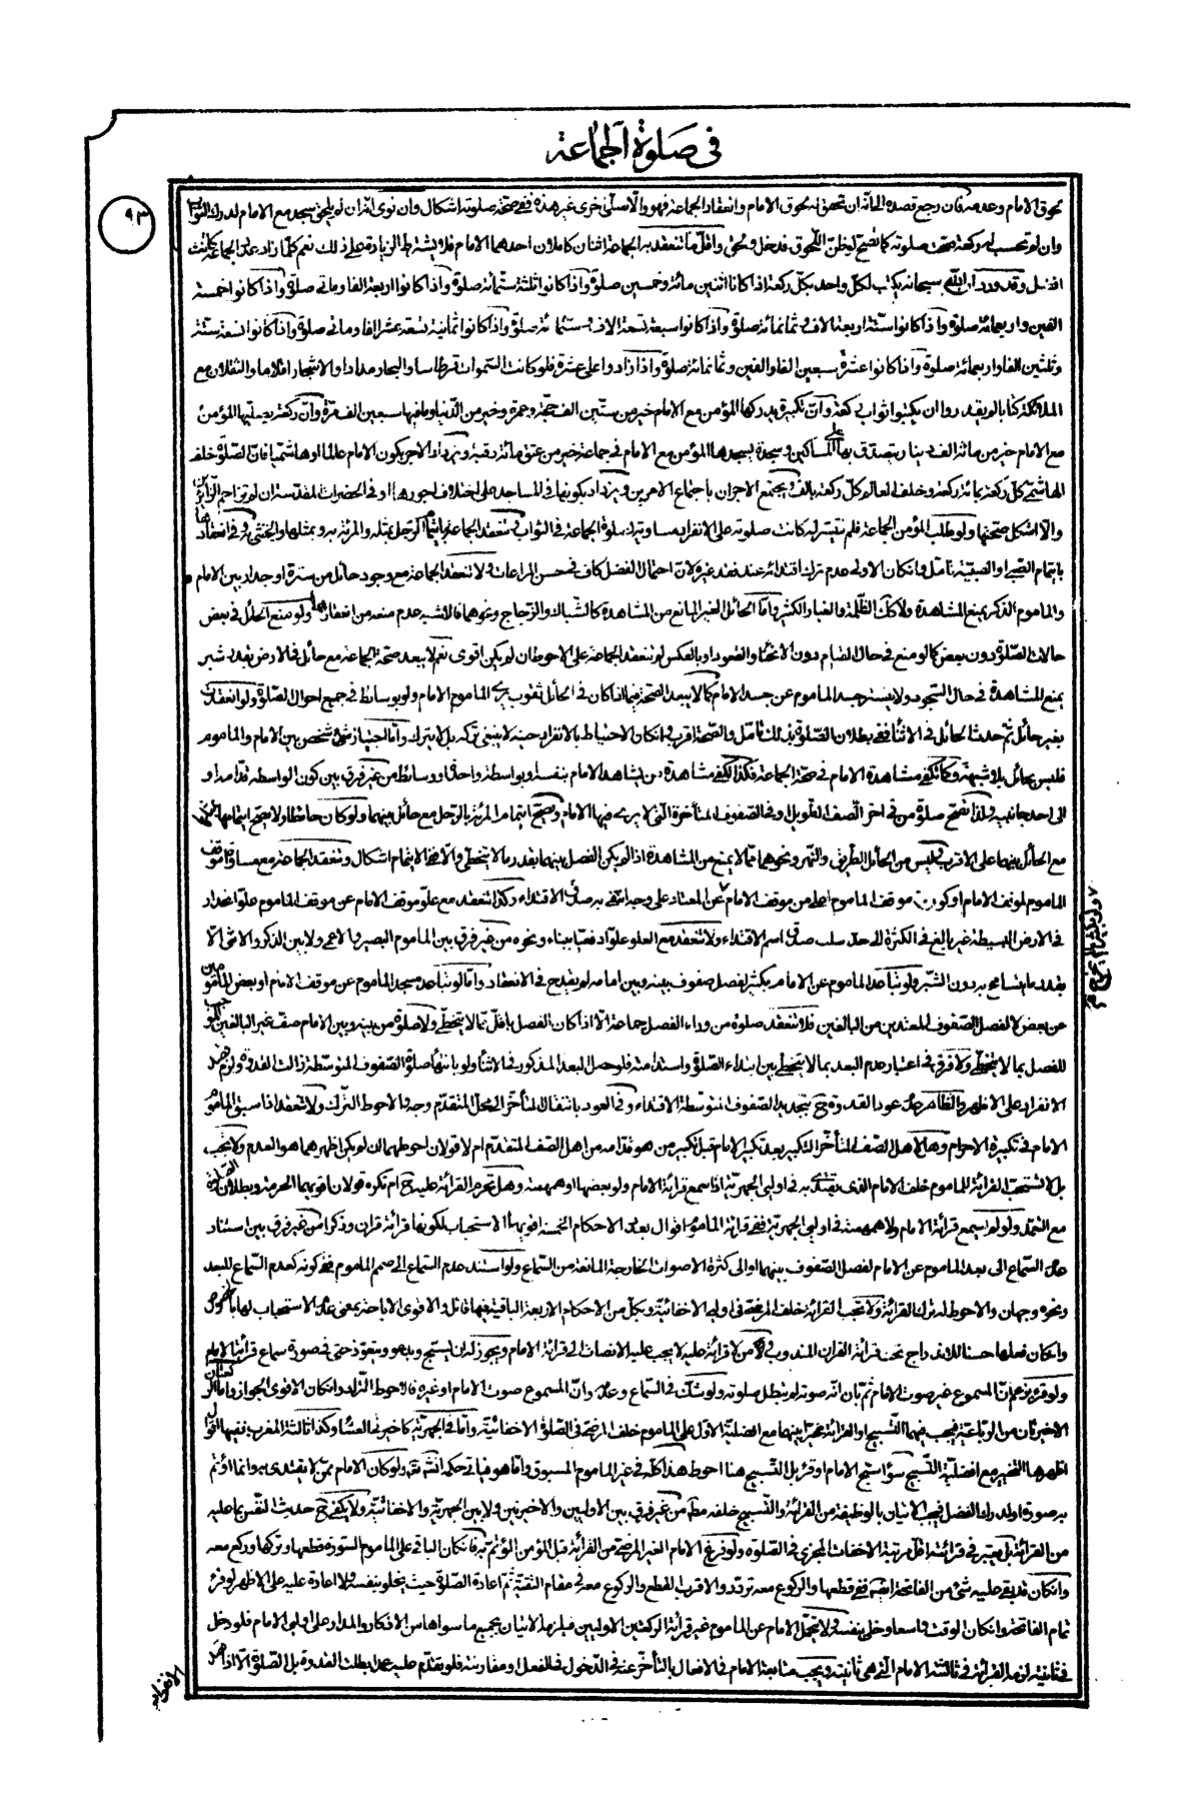 في صلوة الجماعة
٩٣
لحوق الامام وعدمه فان رجع قصده الى انه ان تحقق له لحوق الامام وانعقاد الجماعة فهو والا صلى اخرى غير هذه ففي صحة صلوته اشكال وان نوى انه ان لم يلحق يسجد مع الامام لدرك الثواب
وان لم تحسب له ركعة صحت صلوته كما تصح لو ظن اللحوق فدخل ولحق واقل ما تنعقد به الجماعة اثنان كاملان احدهما الامام فلا يشترط الزيادة على ذلك نعم كلما زاد عدد الجماعة كانت
افضل وقد ورد ان الله سبحانه يكتب لكل واحد بكل ركعة اذا كانا اثنين مائة وخمسين صلوة واذا كانوا ثلثة ستمائة صلوة واذا كانوا اربعة الفا ومأتي صلوة واذا كانوا خمسة
الفين واربعمائة صلوة واذا كانوا ستة اربعة الاف وثمانمائة صلوة واذا كانوا سبعة تسعة الاف وستمائة صلوة واذا كانوا ثمانية تسعة عشر الفا ومأتي صلوة واذا كانوا تسعة ستة
وثلثين الفا واربعمائة صلوة واذا كانوا عشرة سبعين الفا والفين وثمانمائة صلوة واذا زادوا على عشرة فلو كانت السموات قرطاسا والبحار مدادا والاشجار اقلاما والثقلان مع
الملائكة كتابا لم يقدروا ان يكتبوا ثواب ركعة وان تكبيرة يدركها المؤمن مع الامام خير من ستين الف حجة وعمرة وخير من الدنيا وما فيها سبعين الف مرة وان ركعة يصليها المؤمن
مع الامام خير من مائة الف دينار يتصدق بها على المساكين وسجدة يسجدها المؤمن مع الامام في جماعة خير من عتق مائة رقبة ويزداد الاجر بكون الامام عالما او هاشميا فان الصلوة خلف
الهاشمي كل ركعة بمائة ركعة وخلف العالم كل ركعة بالف ويجتمع الاجران باجتماع الامرين ويزداد بكونها في المساجد على اختلاف اجورها او في الحضرات المقدسة ان لم تزاحم الزائرين
والا اشكل صحتها ولو طلب المؤمن الجماعة فلم تتيسر له كانت صلوته على الانفراد مساوية لصلوة الجماعة في الثواب وتنعقد الجماعة بايتمام الرجل بمثله والمرئة به وبمثلها والخنثى به وفي انعقادها
بايتمام الصبي او الصبية تأمل وان كان الاولى عدم ترك اقتدائه عند فقد غيره لان احتمال الفضل كاف في حسن المراعات ولا تنعقد الجماعة مع وجود حائل من سترة او جدار بين الامام
والماموم الذكر يمنع المشاهدة ولا كك الظلمة والغبار الكثير واما الحائل الغير المانع من المشاهدة كالشباك والزجاج ونحوهما فالاشبه عدم منعه من انعقادها ولو منع الحائل في بعض
حالات الصلوة دون بعض كما لو منع في حال القيام دون الانحناء والقعود او بالعكس لم تنعقد الجماعة على الاحوط ان لم يكن اقوى نعم لا يبعد صحة الجماعة مع حائل في الارض بقدر شبر
يمنع المشاهدة في حال السجود ولا يستر جسد الماموم عن جسد الامام كما لا يبعد الصحة فيما اذا كان في الحائل ثقوب يرى الماموم الامام ولو بوسائط في جميع احوال الصلوة ولو انعقدت
بغير حائل ثم حدث الحائل في الاثناء ففي بطلان الصلوة بذلك تأمل والصحة اقرب وان كان الاحتياط بالانفراد حينئذ لا ينبغي تركه بل لا يترك واما اجتياز شئ او شخص بين الامام والماموم
فليس بحائل بلا شبهة وكما تكفي مشاهدة الامام في صحة الجماعة فكذا تكفي مشاهدة من يشاهد الامام بنفسه او بواسطة واحدة او وسائط من غير فرق بين كون الواسطة قدامه او
الى احد جانبيه ولذا تصح صلوة من في اخر الصف الطويل او في الصفوف المتأخرة التي لا يرى فيها الامام ويصح ايتمام المرئة بالرجل مع حائل بينهما ولو كان حائطا ولا يصح ايتمامها بمثلها
مع الحائل بينهما على الاقرب وليس من الحائل الطريق والنهر ونحوهما مما لا يمنع من المشاهدة اذا لم يكن الفصل بينهما بقدر ما لا يتخطى والا ففي الايتمام اشكال وتنعقد الجماعة مع مساواة موقف
الماموم لموقف الامام او كون موقف الماموم اعلى من موقف الامام على المعتاد على وجه لا ينتفي به صدق الاقتداء وكذا تنعقد مع علو موقف الامام عن موقف الماموم علو انحدار
في الارض البسيطة غير بالغ في الكثرة الى حد سلب صدق اسم الاقتداء ولا تنعقد مع العلو علوا دفعيا ببناء ونحوه من غير فرق بين الماموم البصير والاعمى ولا بين الذكر والانثى الا
بقدر ما يتسامح به دون الشبر ولو تباعد الماموم عن الامام بكثير لفصل صفوف بينه وبين امامه لم يقدح في الانعقاد واما لو تباعد مسجد الماموم عن موقف الامام او بعض المأمومين
عن بعض لا لفصل الصفوف المعتدين من البالغين فلا تنعقد صلوة من وراء الفصل جماعة الا اذا كان الفصل باقل مما لا يتخطى ولا صلوة من بينه وبين الامام صف غير البالغين الموجب
للفصل بما لا يتخطى ولا فرق في اعتبار عدم البعد بما لا يتخطى بين ابتداء الصلوة واستدامته فلو حصل البعد المذكور في الاثناء ولو بانتهاء صلوة الصفوف المتوسطة زالت القدوة ولزم قصد
الانفراد على الاظهر والظاهر عدم عود القدوة ح بتجديد الصفوف المتوسطة الاقتداء وفي العود بانتقال المتأخر الى محل المتقدم وجه والاحوط الترك ولا تنعقد اذا سبق الماموم
الامام في تكبيرة الاحرام وهل لاهل الصف المتأخر التكبير بعد تكبير الامام قبل تكبير من هو قدامه من اهل الصف المتقدم ام لا قولان احوطهما ان لم يكن اظهرهما هو العدم ولا تجب
بل لا تستحب القرائة للماموم خلف الامام الذي يقتدى به في اوليي الجهرية اذا سمع قرائة الامام ولو بعضها او همهمته وهل تحرم القرائة عليه ح ام تكره قولان اقويهما الحرمة وبطلان الصلوة
مع التعمد ولو لم يسمع قرائة الامام ولا همهمته في اوليي الجهرية ففي قرائة الماموم اقوال بعدد الاحكام الخمسة اقويها الاستحباب لكونها قرائة قران وذكرا من غير فرق بين استناد
عدم السماع الى بعد الماموم عن الامام لفصل الصفوف بينهما او الى كثرة الاصوات الخارجة المانعة من السماع ولو استند عدم السماع الى صمم الماموم ففي كونه كعدم السماع للبعد
ونحوه وجهان والاحوط له ترك القرائة ولا تجب القرائة خلف المرضي في اوليي الاخفاتية وبكل من الاحكام الاربعة الباقية فيها قائل والاقوى الاباحة بمعنى عدم الاستحباب لها بالخصوص
وان كان فعلها حسنا للاندراج تحت قرائة القران المندوب في كل من لا قرائة عليه لا يجب عليه الانصات الى قرائة الامام ويجوز له ان يسبح ويدعو ويتعوذ حتى في صورة سماع قرائة الامام
ولو قرء بزعم ان المسموع غير صوت الامام ثم بان انه صوته لم تبطل صلوته ولو شك في السماع وعدمه وان المسموع صوت الامام او غيره فالاحوط الترك وان كان الاقوى الجواز واما الركعتان
الاخيرتان من الرباعية فيجب فيهما التسبيح او القرائة مخيرا بينهما مع افضلية الاول على الماموم خلف المرضي في الصلوة الاخفاتية واما في الجهرية كاخيرتي العشاء وكذا ثالثة المغرب ففيها اقوال
اظهرها التخيير مع افضلية التسبيح سواء سبح الامام او قرء بل التسبيح هنا احوط هذا كله في غير الماموم المسبوق واما هو فيأتي حكمه انشاء الله تعالى ولو كان الامام ممن لا يقتدى به وانما اؤتم
به صورة او لدرك الفضل فيجب الاتيان بالوظيفة من القرائة والتسبيح خلفه مطلقا من غير فرق بين الاوليين والاخيرتين ولا بين الجهرية والاخفاتية ولا يكفي ح حديث النفس بما عليه
من القرائة بل يعتبر في قرائته اقل مرتبة الاخفات المجزي في الصلوة ولو فرغ الامام الغير المرضي من القرائة قبل المؤمن المؤتم به فان كان الباقي على الماموم السورة قطعها وتركها وركع معه
وان كان قد بقي عليه شئ من الفاتحة ايضا ففي قطعها والركوع معه تردد والاقرب القطع والركوع معه في مقام التقية ثم اعادة الصلوة حيث يخلو بنفسه ولا اعادة عليه على الاظهر لو قرء
تمام الفاتحة وان كان الوقت واسعا وخلى بنفسه ولا يتحمل الامام عن الماموم غير قرائة الركعتين الاوليين فيلزمه الاتيان بجميع ما سواها من الاذكار والمدار على اوليي الامام فلو دخل
في ثانيته لزمه القرائة في ثالثة الامام التي هي ثانيته ويجب متابعة الامام في الافعال بالتأخر عنه في الدخول في الفعل او مقارنته فلو تقدم عليه عمدا بطلت القدوة بل الصلوة الا اذا قصد
الانفراد